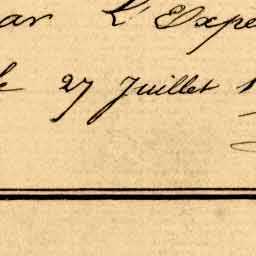 par L'Expe
le 27 Juillet 1